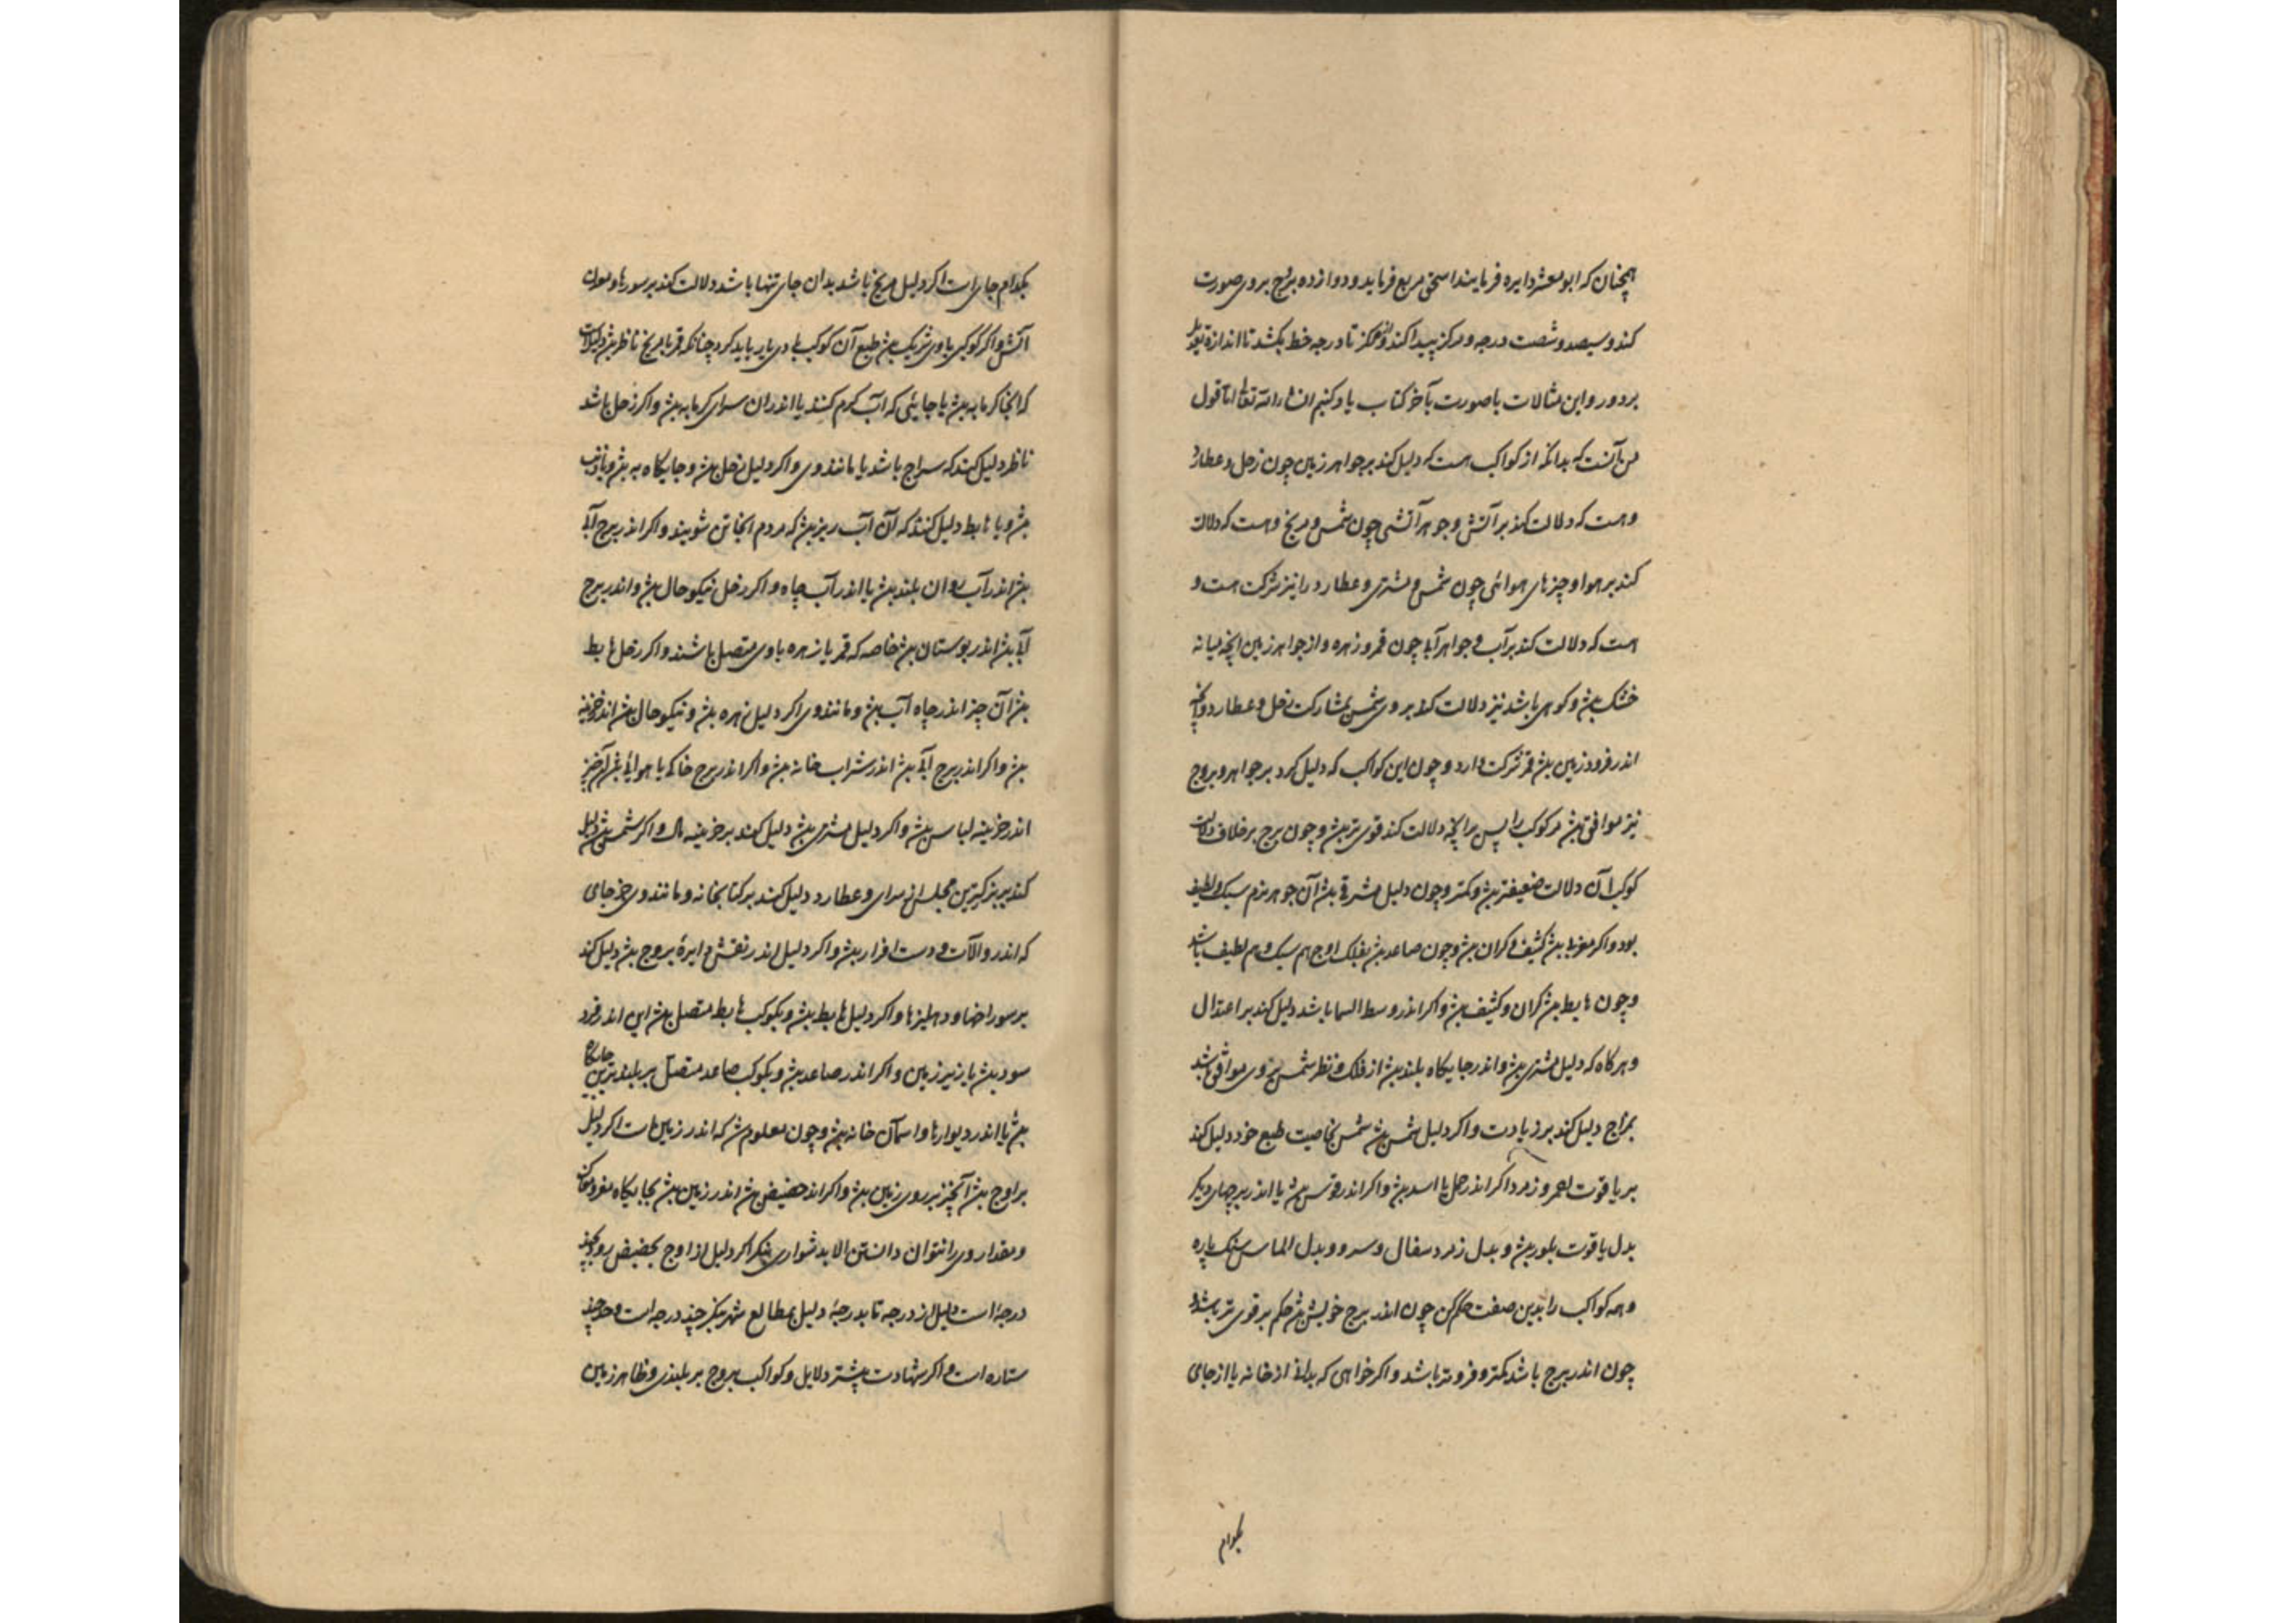 همچنان که ابومعشر دایره فرمایند اسحق مربع فرماید و دوازده برج بروی صورت
کند و سیصد و شصت درجه و مرکز پیدا کند و از مرکز تا درجه خط بکشد تا اندازه
بر دور و این مثالات با صورت بآخر کتاب یاد کنیم انشاء الله تعالی اما قول
من آنست که بدانکه از کواکب هست که دلیل کند بر جواهر زمین چون زحل و عطارد
و هست که دلالت کند بر آتش و جوهر آتشی چون شمس و مریخ و هست که دلالت
کند بر هوا و چیزهای هوائی چون شمس و مشتری و عطارد را نیز شرکت هست و
هست که دلالت کند بر آب و جواهر آبی چون قمر و زهره و از جواهر زمین آنچه میانه
خشک بش و کوهی باشد نیز دلالت کند بروی شمس بمشارکت زحل و عطارد و آنچه
اندر فرود زمین بش قمر شرکت دارد و چون این کواکب که دلیل کرد بر جواهر و بروج
نیز موافق بش مر کوکب را پس بر آنچه دلالت کند قوی تر بش و چون برج بر خلاف دلالت
کوکب آن دلالت ضعیفتر بش و کمتر و چون دلیل مشرقی بش آن جوهر نرم سبک و لطیف
بود و اگر مغربی بش کثیف و کران بش و چون صاعد بش بفلک اوج هم سبک و هم لطیف باشد
و چون هابط بش کران و کثیف بش و اکر اندر وسط السما باشد دلیل کند بر اعتدال
و هرکاه که دلیل مشتری بش و اندر جایکاه بلند بش از فلک و نظر شمس بر وی موافق باشد
بمزاج دلیل کند بر زیادت و اکر دلیل شمس بش شمس بخاصیت طبع خود دلیل کند
بر یاقوت احمر و زمرد اکر اندر حمل یا اسد بش و اکر اندر قوس بش یا اندر برجهای دیکر
بدل یاقوت بلور بش و بدل زمرد سفال و سرو و بدل الماس سنک پاره
و همه کواکب را بدین صفت حکم کن چون اندر برج خویش بش حکم بر قوی تر باشد و
چون اندر برج باشد کمتر و فروتر باشد و اکر خواهی که بدانی از خانه یا از جای
بکدام
بکدام جای است اکر دلیل مریخ باشد بدان جای تنها باشد دلالت کند بر
آتش و اکر کوکبی با وی شریک بش طبع آن کوکب با وی یار باید کرد چنانکه قمر با مریخ ناظر بش دلیل است
که آنجا کرمابه بش یا جایئی که آب کرم کنند یا اندران سرای کرمابه بش و اکر زحل باشد
ناظر دلیل کند که سراج باشد یا مانند وی و اکر دلیل زحل بش و جایکاه
بش و یا هابط دلیل کند که آن آب ریز بش که مردم آنجا تن شویند و اکر اندر برج آبی
بش اندر آب روان بلند بش یا اندر آب چاه و اکر زحل نیکو حال بش و اندر برج
آبی بش اندر بوستان بش خاصه که قمر یا زهره با وی متصل باشند و اکر زحل هابط
بش آن چیز اندر چاه آب بش و مانند وی اکر دلیل زهره بش و نیکو حال بش اندر خزینه
بش و اکر اندر برج آبی بش اندر شراب خانه بش و اکر اندر برج خاکی یا هوائی بش آن چیز
اندر خزینه لباس بش و اکر دلیل مشتری بش دلیل کند بر خزینه مال و اکر شمس بش دلیل
کند بر بزرکترین مجلس از سرای و عطارد دلیل کند بر کتابخانه و مانند وی جز جای
که اندر و آلات و دست افزار بش و اکر دلیل اندر نقش دایرۀ بروج بش دلیل کند
بر سوراخها و دهلیزها و اکر دلیل هابط بش و بکوکب هابط متصل بش این اندر فرود
سود بش یا زیر زمین و اکر اندر صاعد بش و بکوکب صاعد متصل بر بلندترین جایکاه
بش یا اندر دیوارها و آسمان خانه بش و چون معلوم شد که اندر زمین است اکر دلیل
بر اوج بش آنچیز بر روی زمین بش و اکر اندر حضیض بش اندر زمین بش بجایکاه
و مقدار وی را نتوان دانستن الا بدشواری بنکر اکر دلیل از اوج بحضیض رود بچند
درجۀ است دلیل از درجه تا بدرجۀ دلیل بمطالع شهر بنکر چند درجه است
ستاره است و اکر شهادت بیشتر دلایل و کواکب بروج بر بلندی و ظاهر زمین